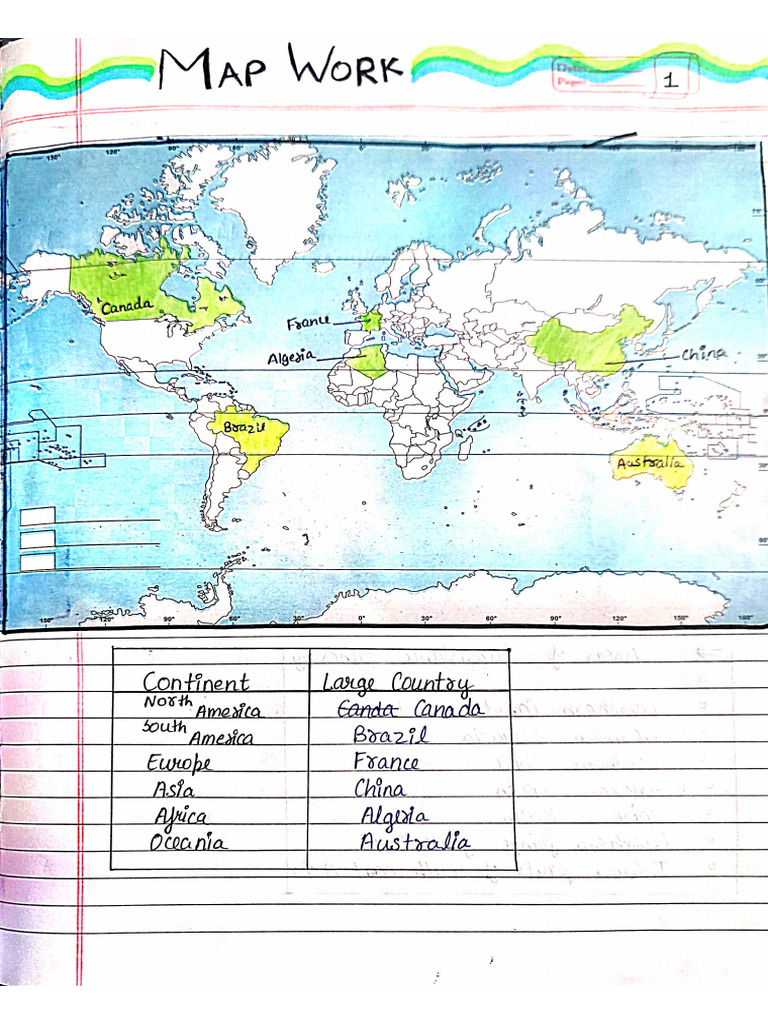 MAP WORK
Date:
Page:
1
150° 120° 90° 60° 30° 0° 30° 60° 90° 120°
Canada
France
Algeria
China
Brazil
Australia
150° 120° 90° 60° 30° 0° 30° 60° 90° 120° 150° 180°
Continent Large Country
North America Canda Canada
South America Brazil
Europe France
Asia China
Africa Algeria
Oceania Australia